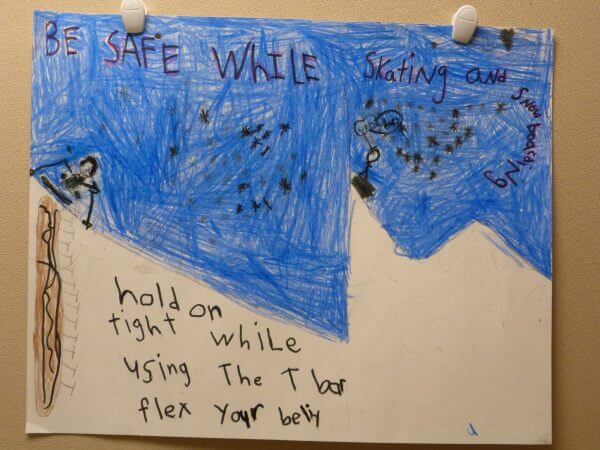 BE SAFE WHILE Skating and
Snowboarding
hold on
tight while
using The T bar
flex your belly